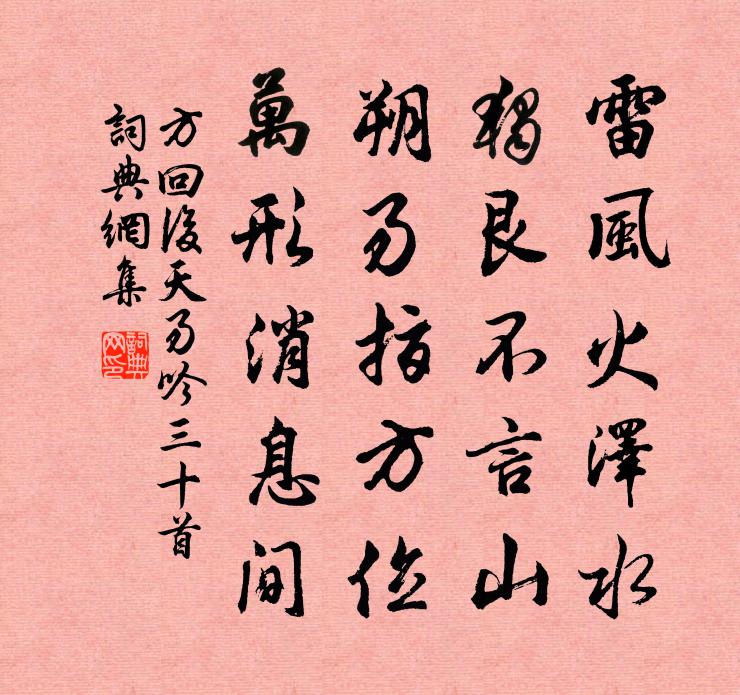 雷風火澤水
獨艮不言山
朔易指方位
萬形消息間
方回後天易吟三十首
詞典網集
詞典网印